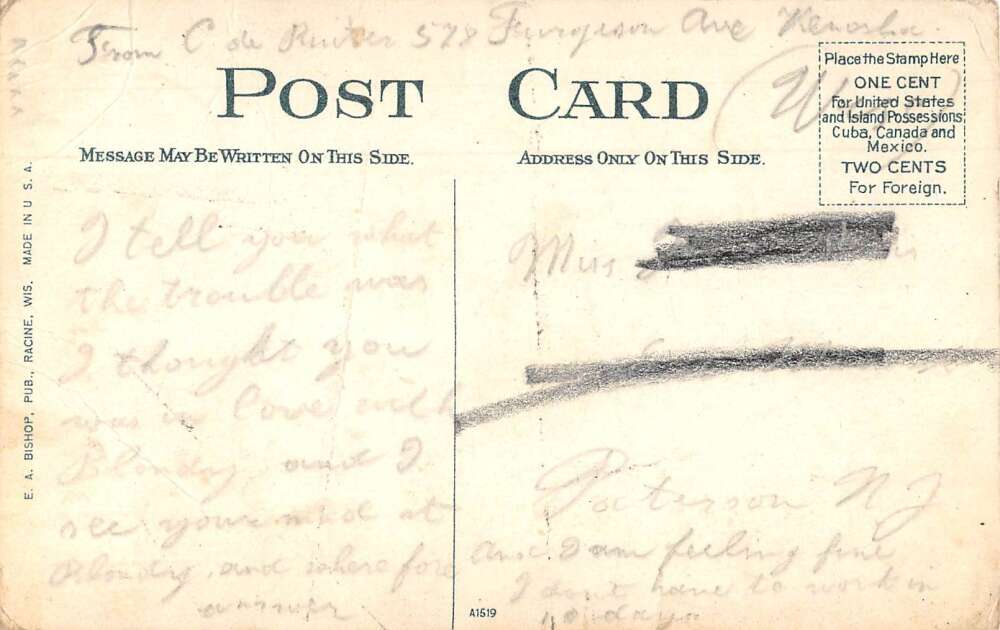 From C de Ruiter 578 Furgeson Ave Kenosha.
(Wis)
POST CARD
Place the Stamp Here
ONE CENT
For United States
and Island Possessions
Cuba, Canada and
Mexico.
TWO CENTS
For Foreign.
MESSAGE MAY BE WRITTEN ON THIS SIDE.
ADDRESS ONLY ON THIS SIDE.
E. A. BISHOP, PUB., RACINE, WIS. MADE IN U S. A.
I tell you what
the trouble was
I thought you
was in love with
Blondy, and I
see your at
Blondy, and where fore
Miss
Patterson N J
and I am feeling fine
I dont have to work in
10 days
A1519